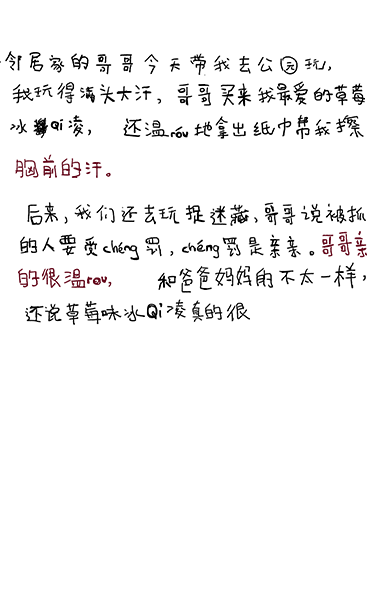 邻居家的哥哥今天带我去公园玩，
我玩得满头大汗，哥哥买来我最爱的草莓
冰Qi凌，还温róu地拿出纸巾帮我擦
胸前的汗。
后来，我们还去玩捉迷藏，哥哥说被抓
的人要受chéng罚，chéng罚是亲亲。哥哥亲
的很温rou，和爸爸妈妈的不太一样，
还说草莓味冰Qi凌真的很